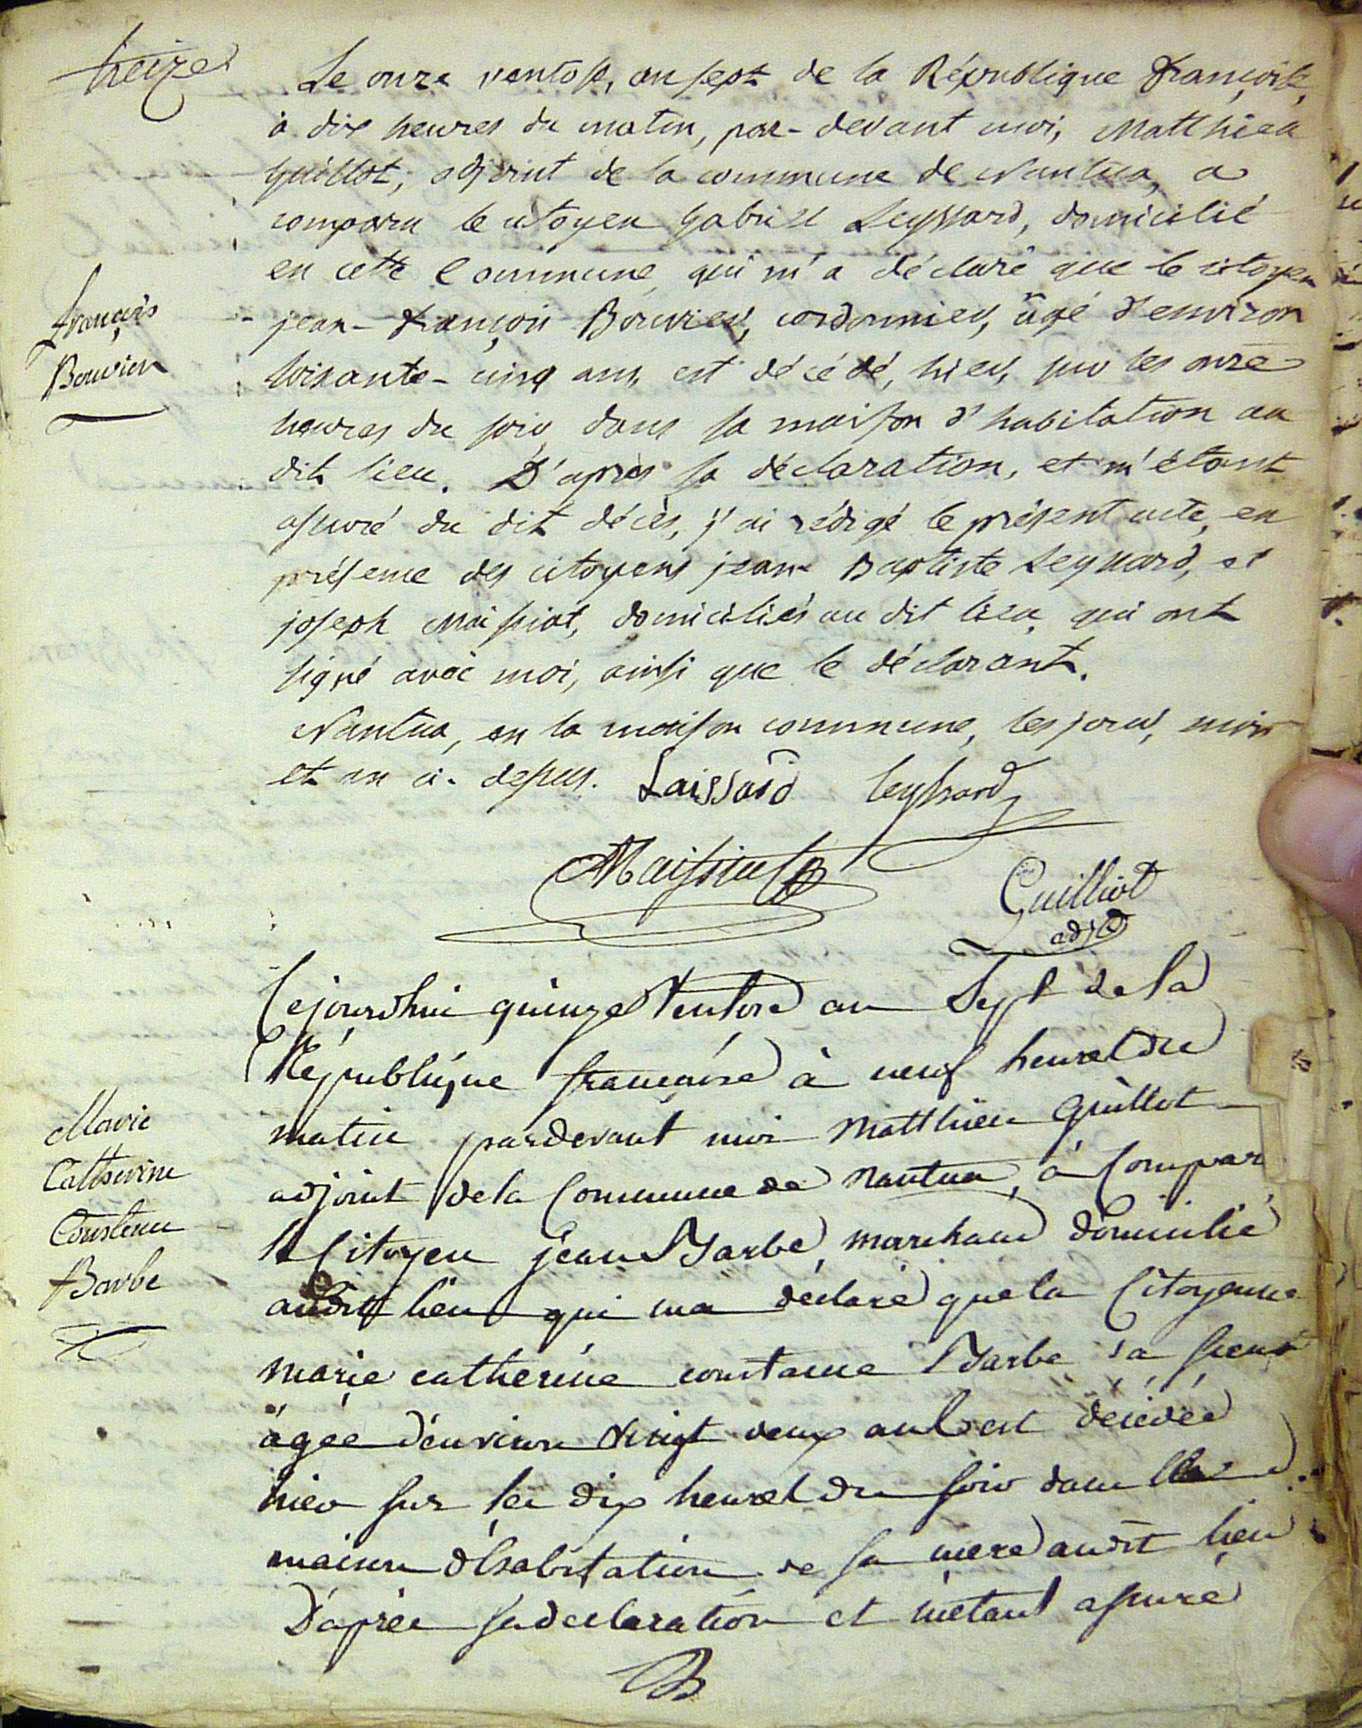 treize
Le onze ventose, an sept de la République Françoise,
à dix heures du matin, par-devant moi, Matthieu
Guillot, adjoint de la commune de Nantua, a
comparu le citoyen Gabriel Leyssard, domicilié
en cette Commune, qui m'a déclaré que le citoyen
jean-François Bouvier, cordonnier, âgé d'environ
soixante-cinq ans, est décédé, hier, sur les onze
heures du soir, dans sa maison d'habitation au
dit lieu. D'après sa déclaration, et m'étant
assuré du dit décès, j'ai rédigé le présent acte, en
présence des citoyens jean Baptiste Leyssard, et
joseph Maissiat, domiciliés au dit lieu, qui ont
signé avec moi, ainsi que le déclarant.
Nantua, en la maison commune, les jour, mois
et an ci-dessus. Laissard Leyssard
Maissiat
Guilliot
adjt
françois
Bouvier
Cejourdhui quinze Ventose an Sept de la
République française à neuf heures du
matin pardevant moi Matthieu Guillot
adjoint de la Commune de Nantua, à Compar
le Citoyen jean Barbe, marchand domicilié
audit lieu qui ma déclaré que la Citoyenne
marie catherine constance Barbe sa soeur
âgée d'environ vingt deux ans est décédée
hier sur les dix heures du soir dans la
maison d'habitation de sa mere audit lieu
D'après sa declaration et m'etant assuré
Marie
Catherine
Constance
Barbe